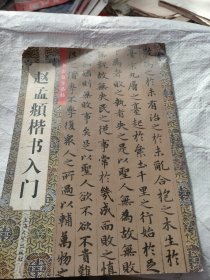 之於未有治之於未亂合抱之木生於
層之臺起於累土千里之行始於
敗之執者失之是以聖人無為故無敗
故無失民之從事常於幾成而敗
始則無敗事矣是以聖人欲不欲不貴
不學復衆人之所過以輔萬物之
赵孟頫楷书入门